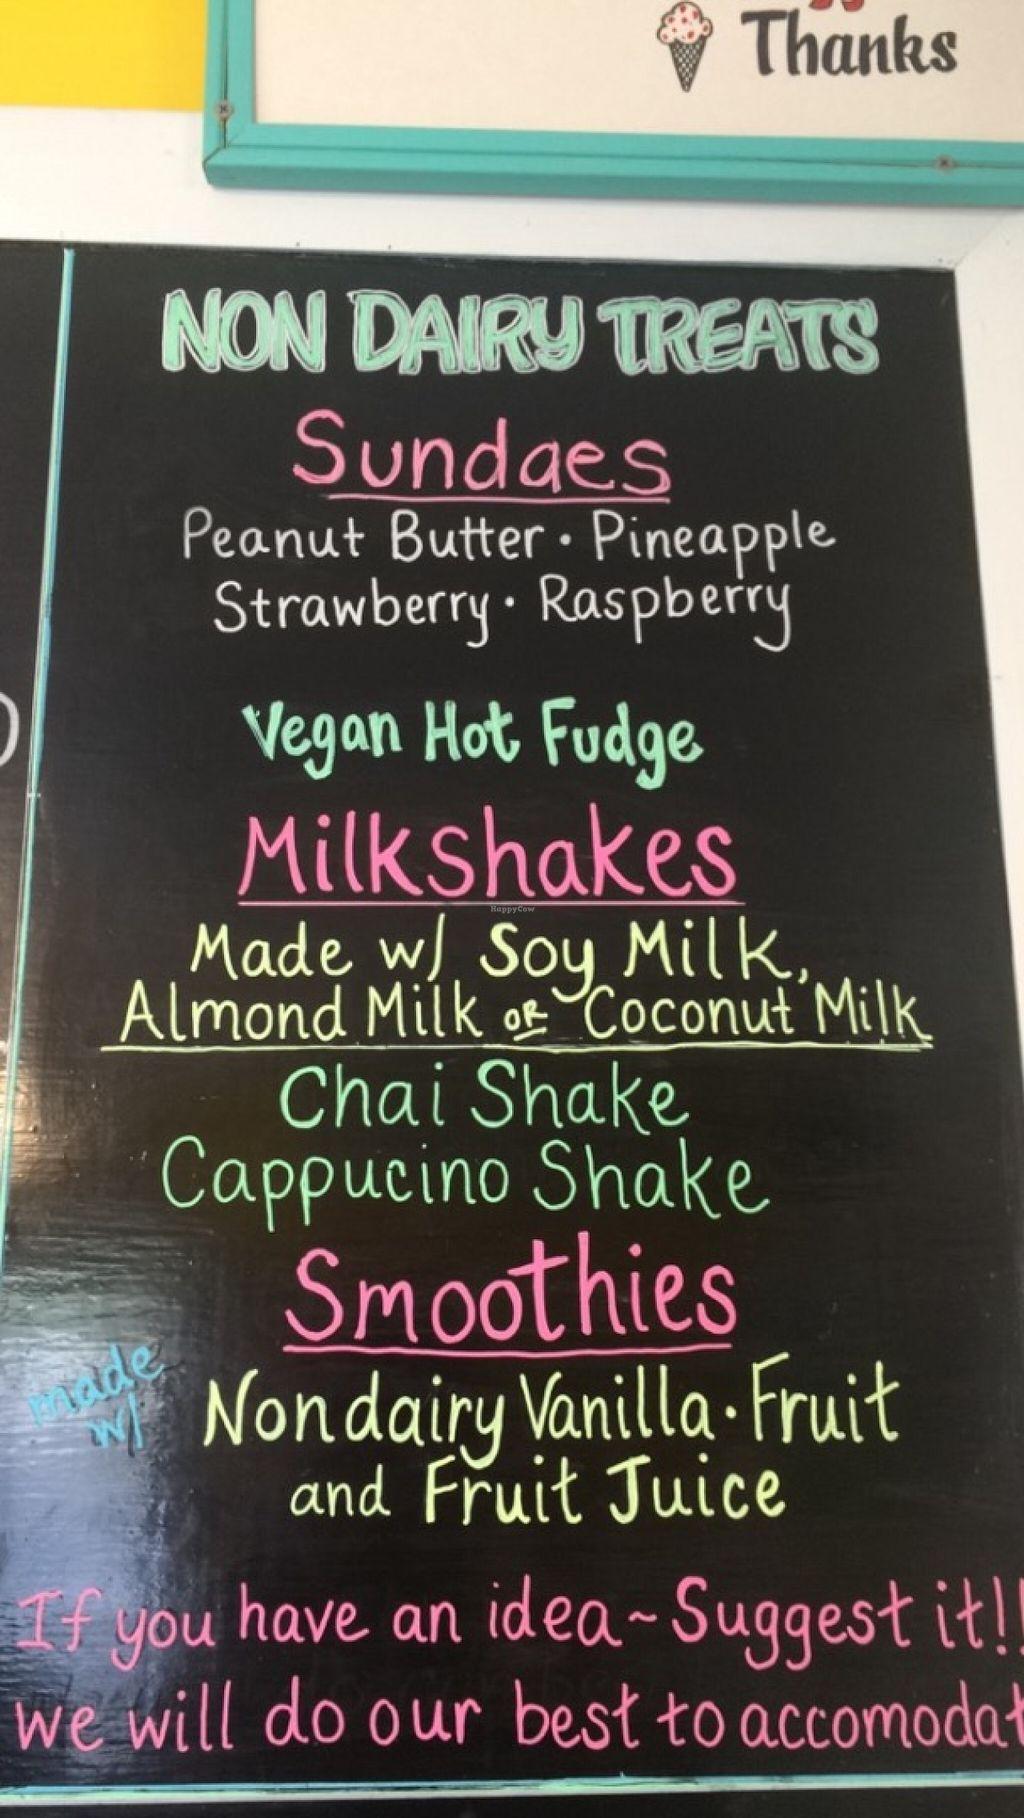 Thanks
NON DAIRY TREATS
Sundaes
Peanut Butter · Pineapple
Strawberry · Raspberry
Vegan Hot Fudge
Milkshakes
HappyCow
Made w/ Soy Milk,
Almond Milk OR Coconut Milk
Chai Shake
Cappucino Shake
Smoothies
made
w/
Nondairy Vanilla · Fruit
and Fruit Juice
If you have an idea ~ Suggest it!!
we will do our best to accomodat